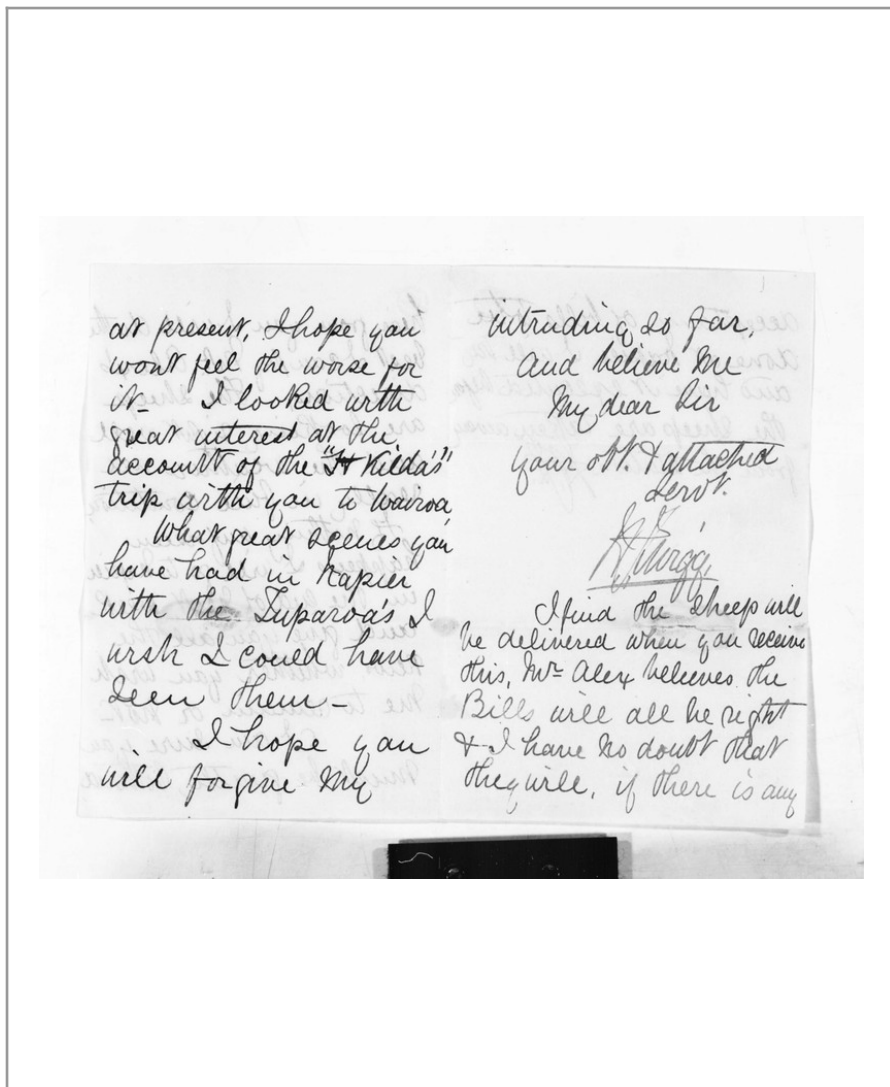 at present, I hope you
wont feel the worse for
it – I looked with
great interest at the
account of the "St Kilda's"
trip with you to Wairoa,
What great scenes you
have had in Napier
with the Tuparoa's I
wish I could have
seen them –
I hope you
will forgive my
intruding so far,
and believe me
My dear Sir
your obt. & attached
Servt.
I find the sheep will
be delivered when you receive
this, Mr Alex believes the
Bills will all be right
& I have no doubt that
they will, if there is any